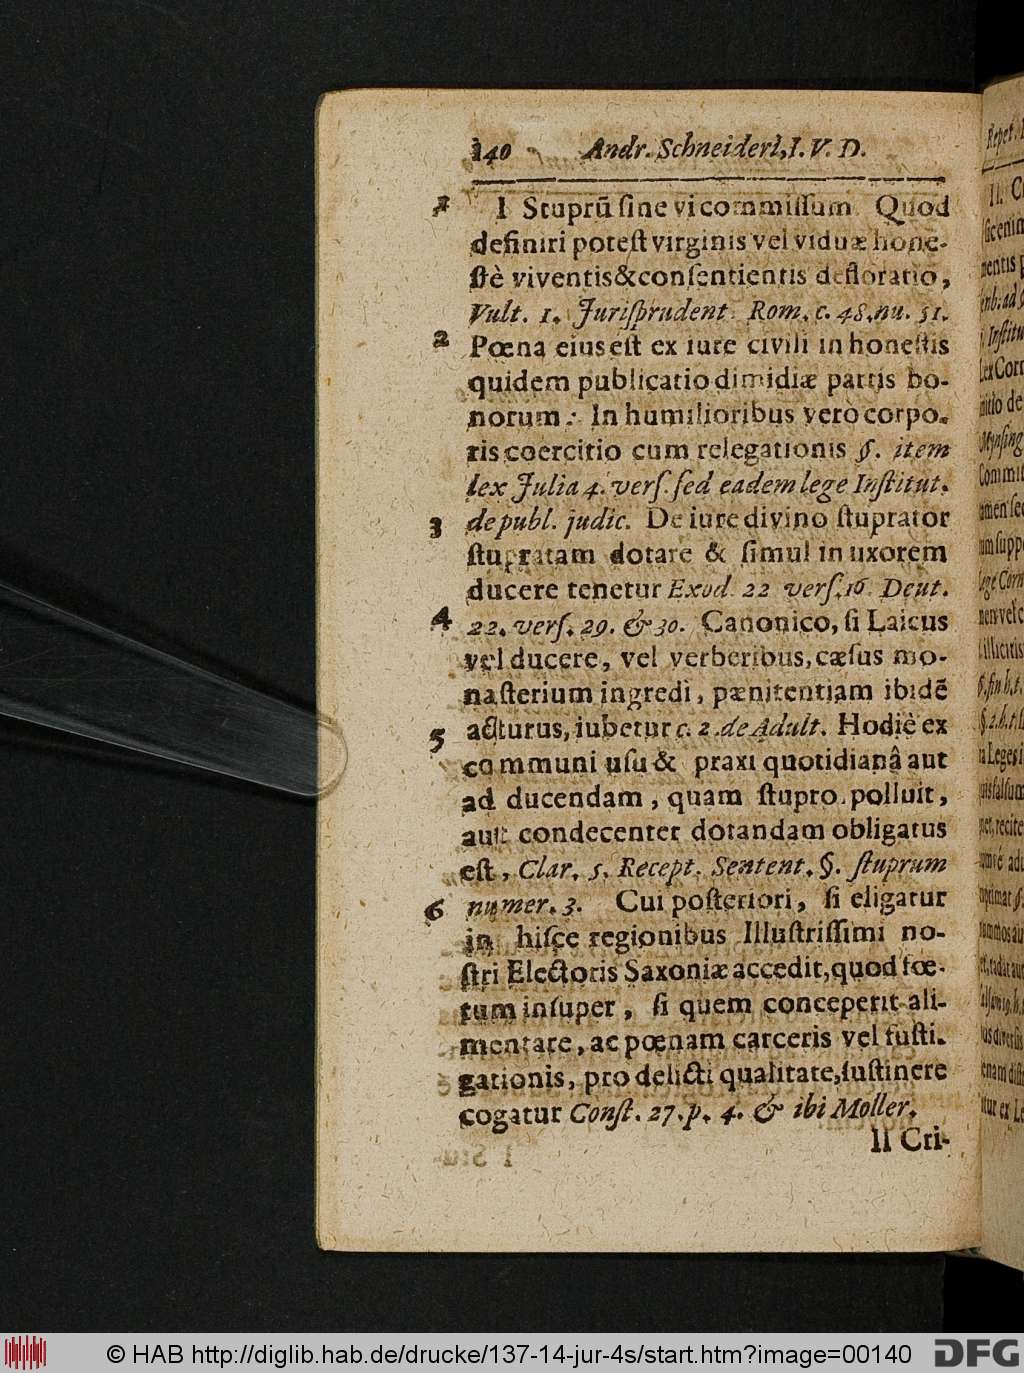 140 Andr. Schneideri, I. V. D.
1 I Stuprũ sine vi commissum. Quod
definiri potest virginis vel viduæ hone-
stè viventis & consentientis defloratio,
Vult. 1. Jurisprudent. Rom. c. 48. nu. 51.
2 Pœna eius est ex iure civili in honestis
quidem publicatio dimidiæ partis bo-
norum: In humilioribus verò corpo-
ris coercitio cum relegationis §. item
lex Julia 4. vers. sed eadem lege Institut.
3 de publ. judic. De iure divino stuprator
stupratam dotare & simul in uxorem
ducere tenetur Exod. 22 vers. 16. Deut.
4 22. vers. 29. & 30. Canonico, si Laicus
vel ducere, vel verberibus, cæsus mo-
nasterium ingredi, pænitentiam ibidẽ
5 acturus, iubetur c. 2. de Adult. Hodiè ex
communi usu & praxi quotidianâ aut
ad ducendam, quam stupro polluit,
aut condecenter dotandam obligatus
est, Clar. 5. Recept. Sentent. §. stuprum
6 numer. 3. Cui posteriori, si eligatur
in hisce regionibus Illustrissimi no-
stri Electoris Saxoniæ accedit, quod fœ-
tum insuper, si quem conceperit ali-
mentare, ac pœnam carceris vel fusti-
gationis, pro delicti qualitate, sustinere
cogatur Const. 27. p. 4. & ibi Moller.
II Cri-
© HAB http://diglib.hab.de/drucke/137-14-jur-4s/start.htm?image=00140
DFG